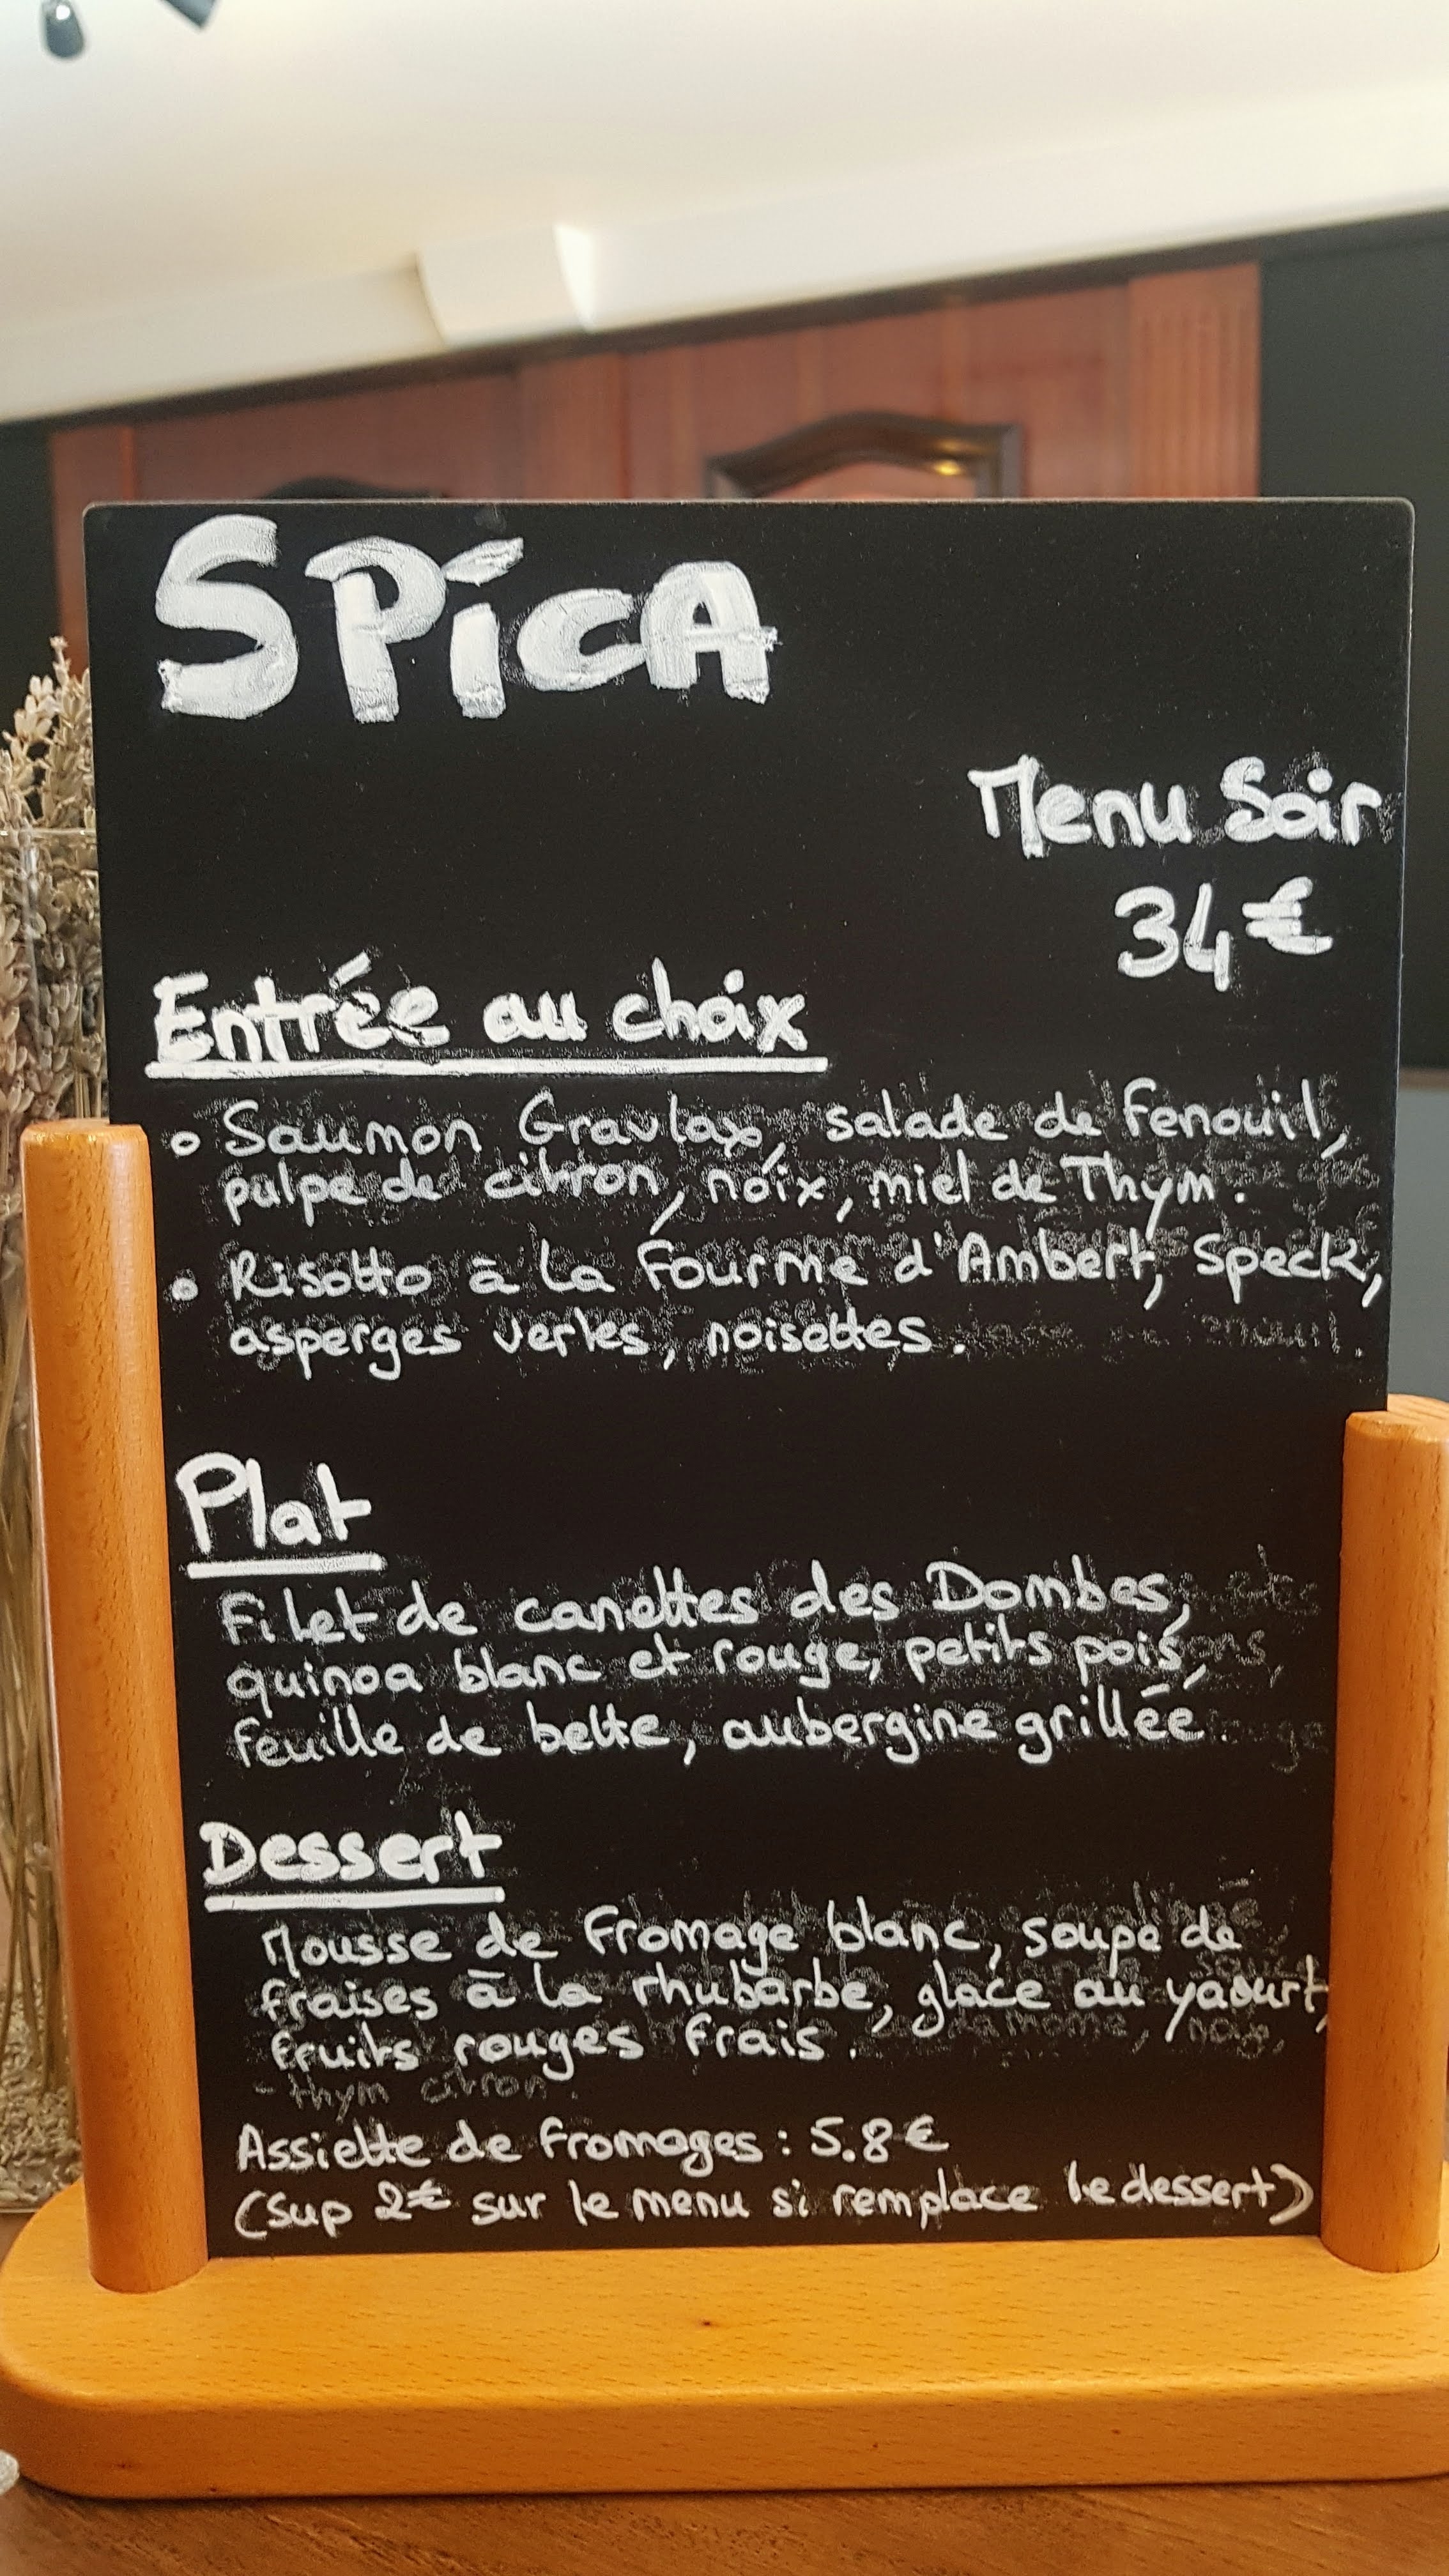 SPicA
Menu Soir
34€
Entrée au choix
Saumon Gravlax, salade de Fenouil,
pulpe de citron, noix, miel de Thym.
Risotto à la Fourme d'Ambert, Speck,
asperges vertes, noisettes.
Plat
Filet de canettes des Dombes,
quinoa blanc et rouge, petits pois,
feuille de bette, aubergine grillée.
Dessert
Mousse de Fromage blanc, soupe de
fraises à la rhubarbe, glace au yaourt,
fruits rouges frais.
thym citron.
Assiette de fromages : 5.8€
(Sup 2€ sur le menu si remplace le dessert)